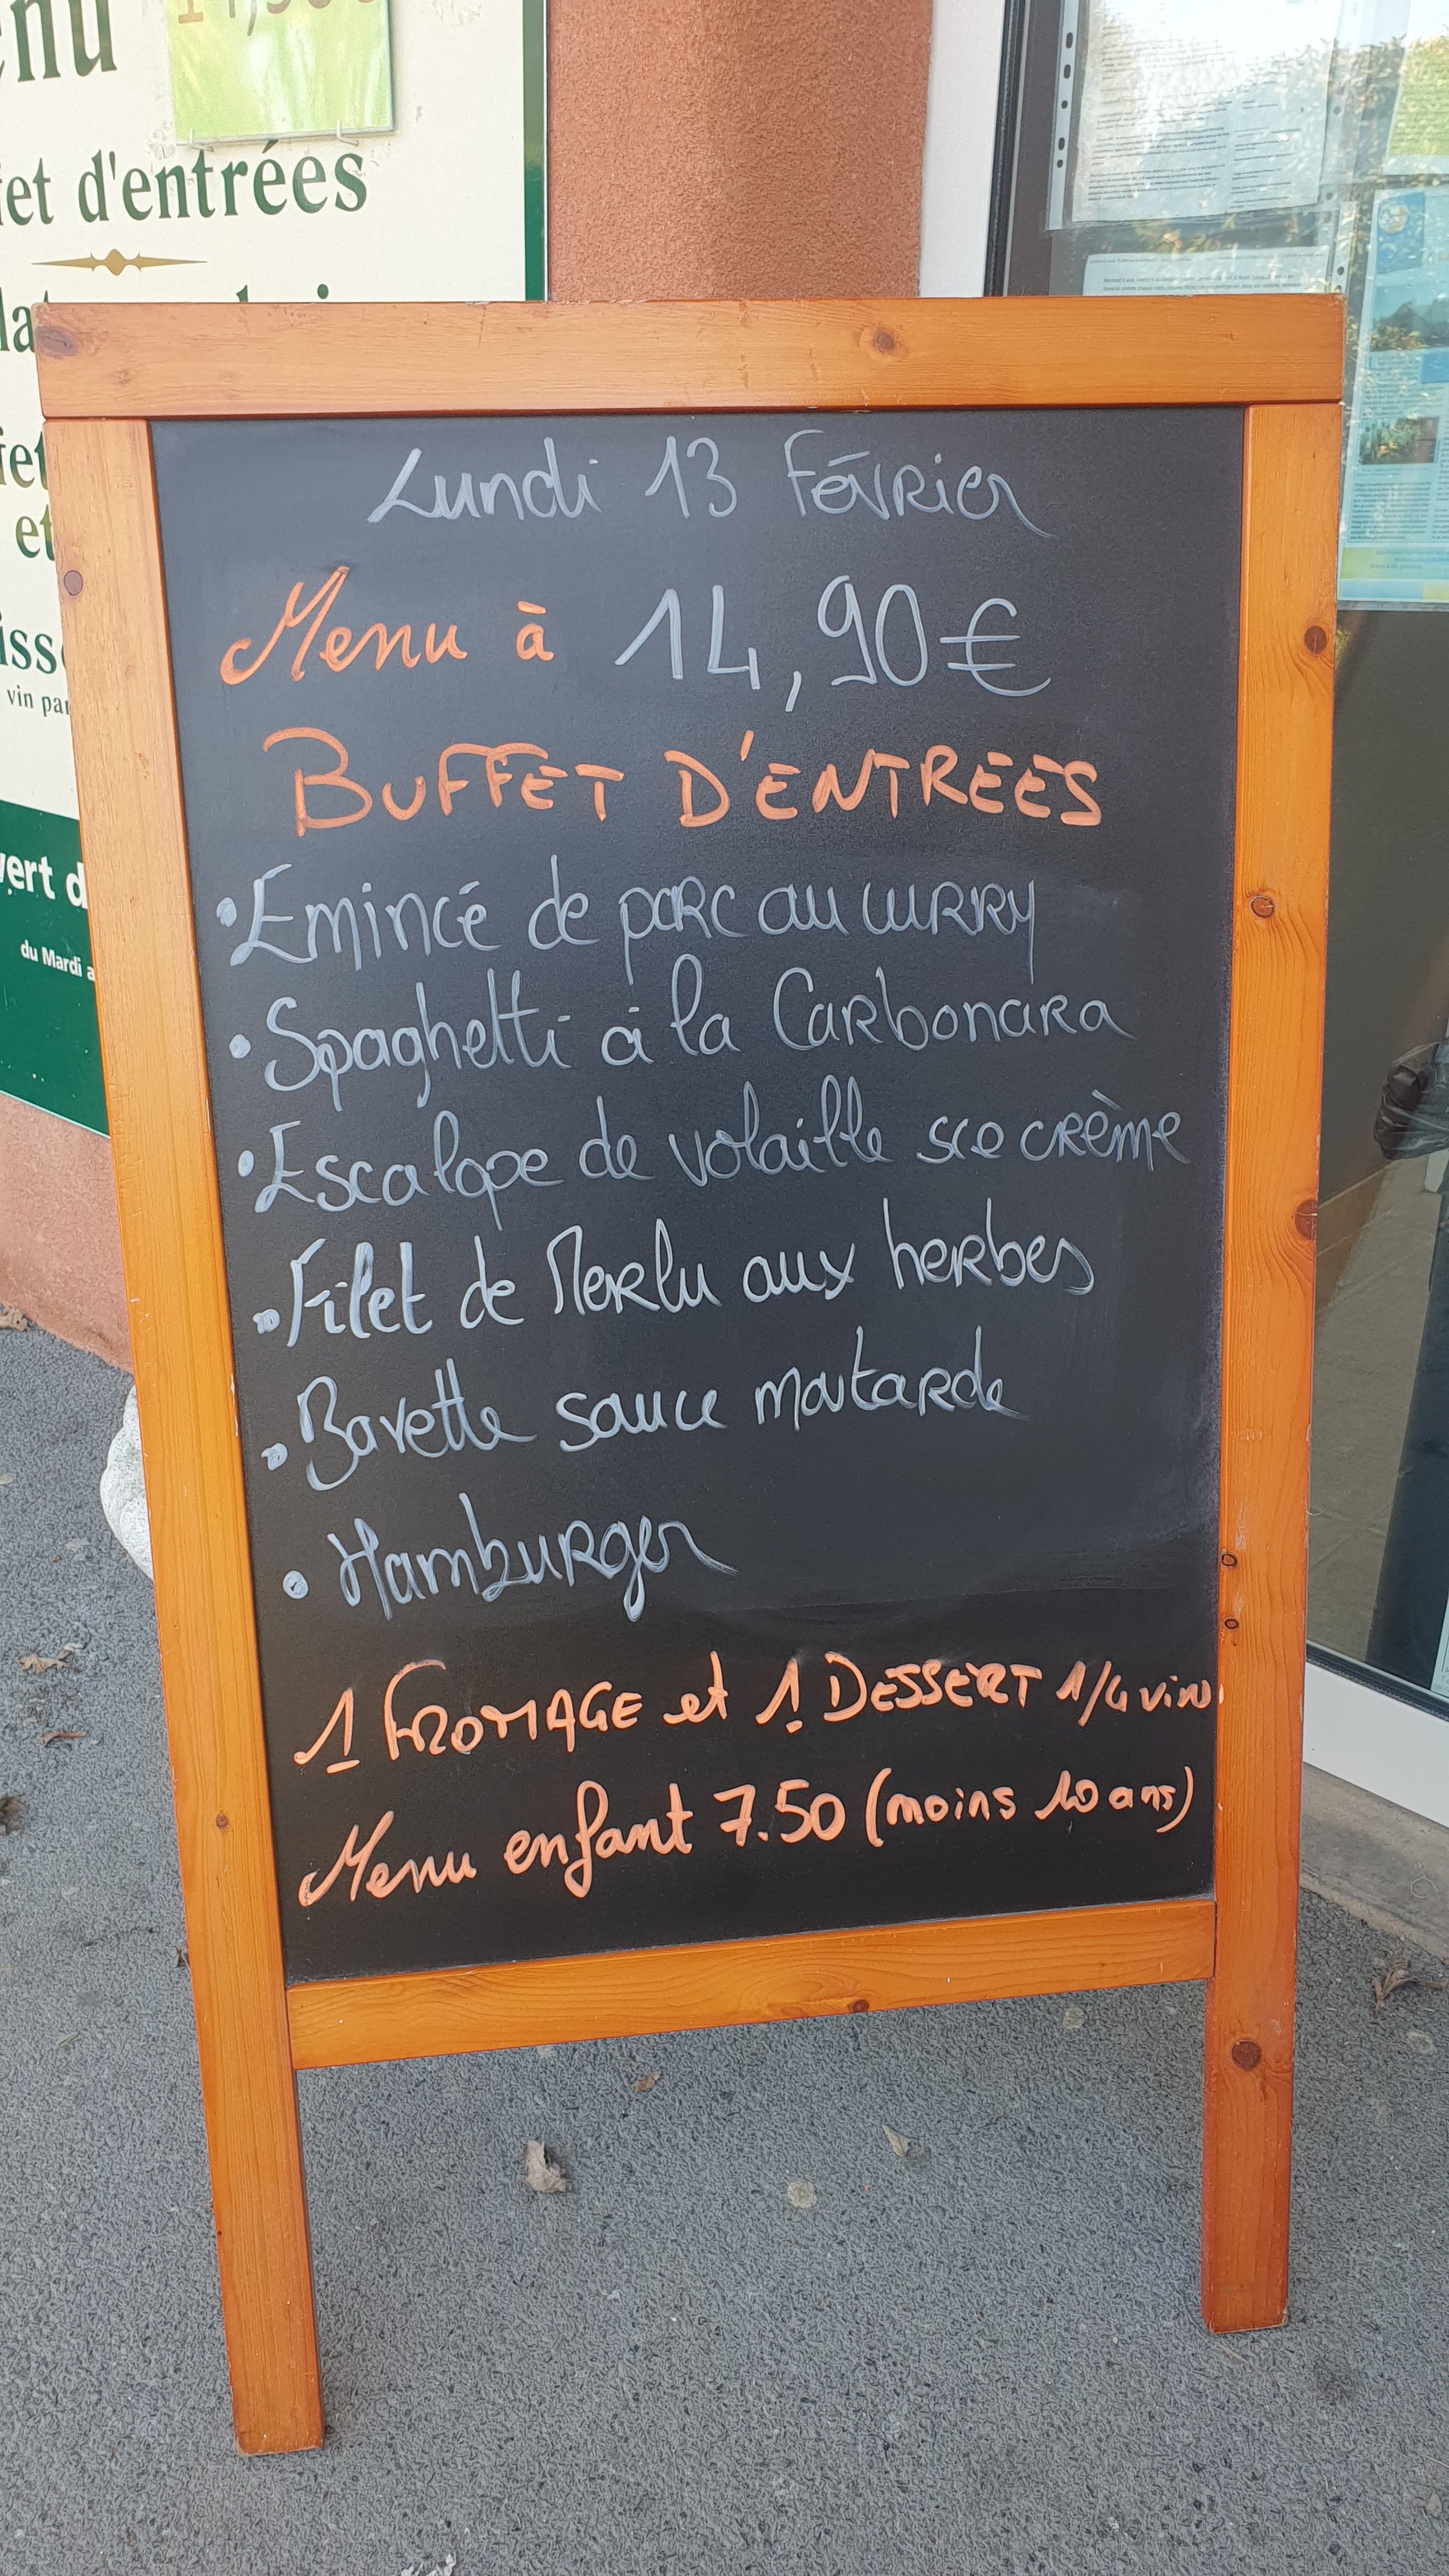 enu
14,90€
et d'entrées
et
vin par
vert d
du Mardi a
Lundi 13 Février
Menu à 14,90€
BUFFET D'ENTREES
• Emincé de porc au curry
• Spaghetti à la Carbonara
• Escalope de volaille sce crème
• Filet de Merlu aux herbes
• Bavette sauce moutarde
• Hamburger
1 FROMAGE et 1 DESSERT 1/4 vin
Menu enfant 7.50 (moins 10 ans)